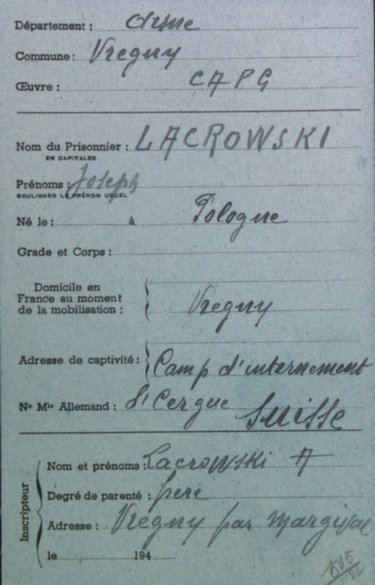 Département : Aisne
Commune : Vregny
Œuvre : CAPG
Nom du Prisonnier : LACROWSKI
EN CAPITALES
Prénoms : Joseph
SOULIGNER LE PRÉNOM USUEL
Né le : à Pologne
Grade et Corps :
Domicile en
France au moment
de la mobilisation : Vregny
Adresse de captivité : Camp d'internement
No Mle Allemand : St Cergue Suisse
Inscripteur
Nom et prénoms : Lacrowski A
Degré de parenté : père
Adresse : Vregny par Margival
le 194